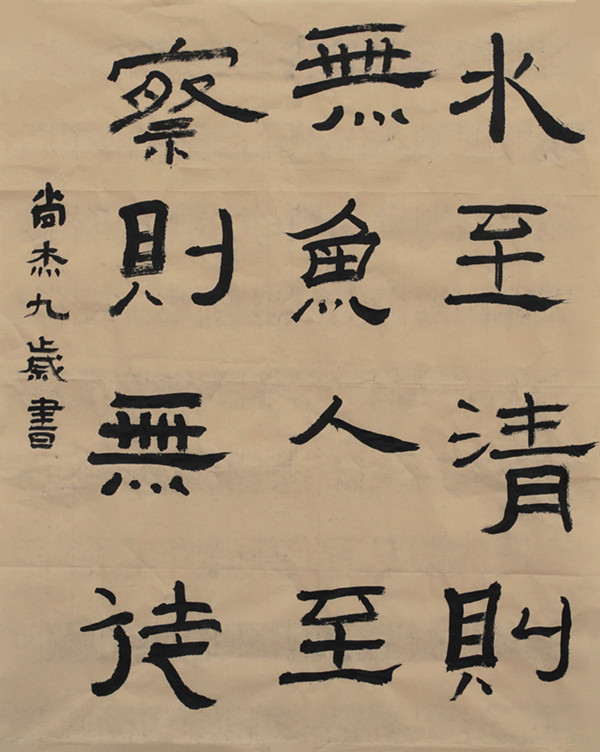 水至清則
無魚人至
察則無徒
尚杰九歲書